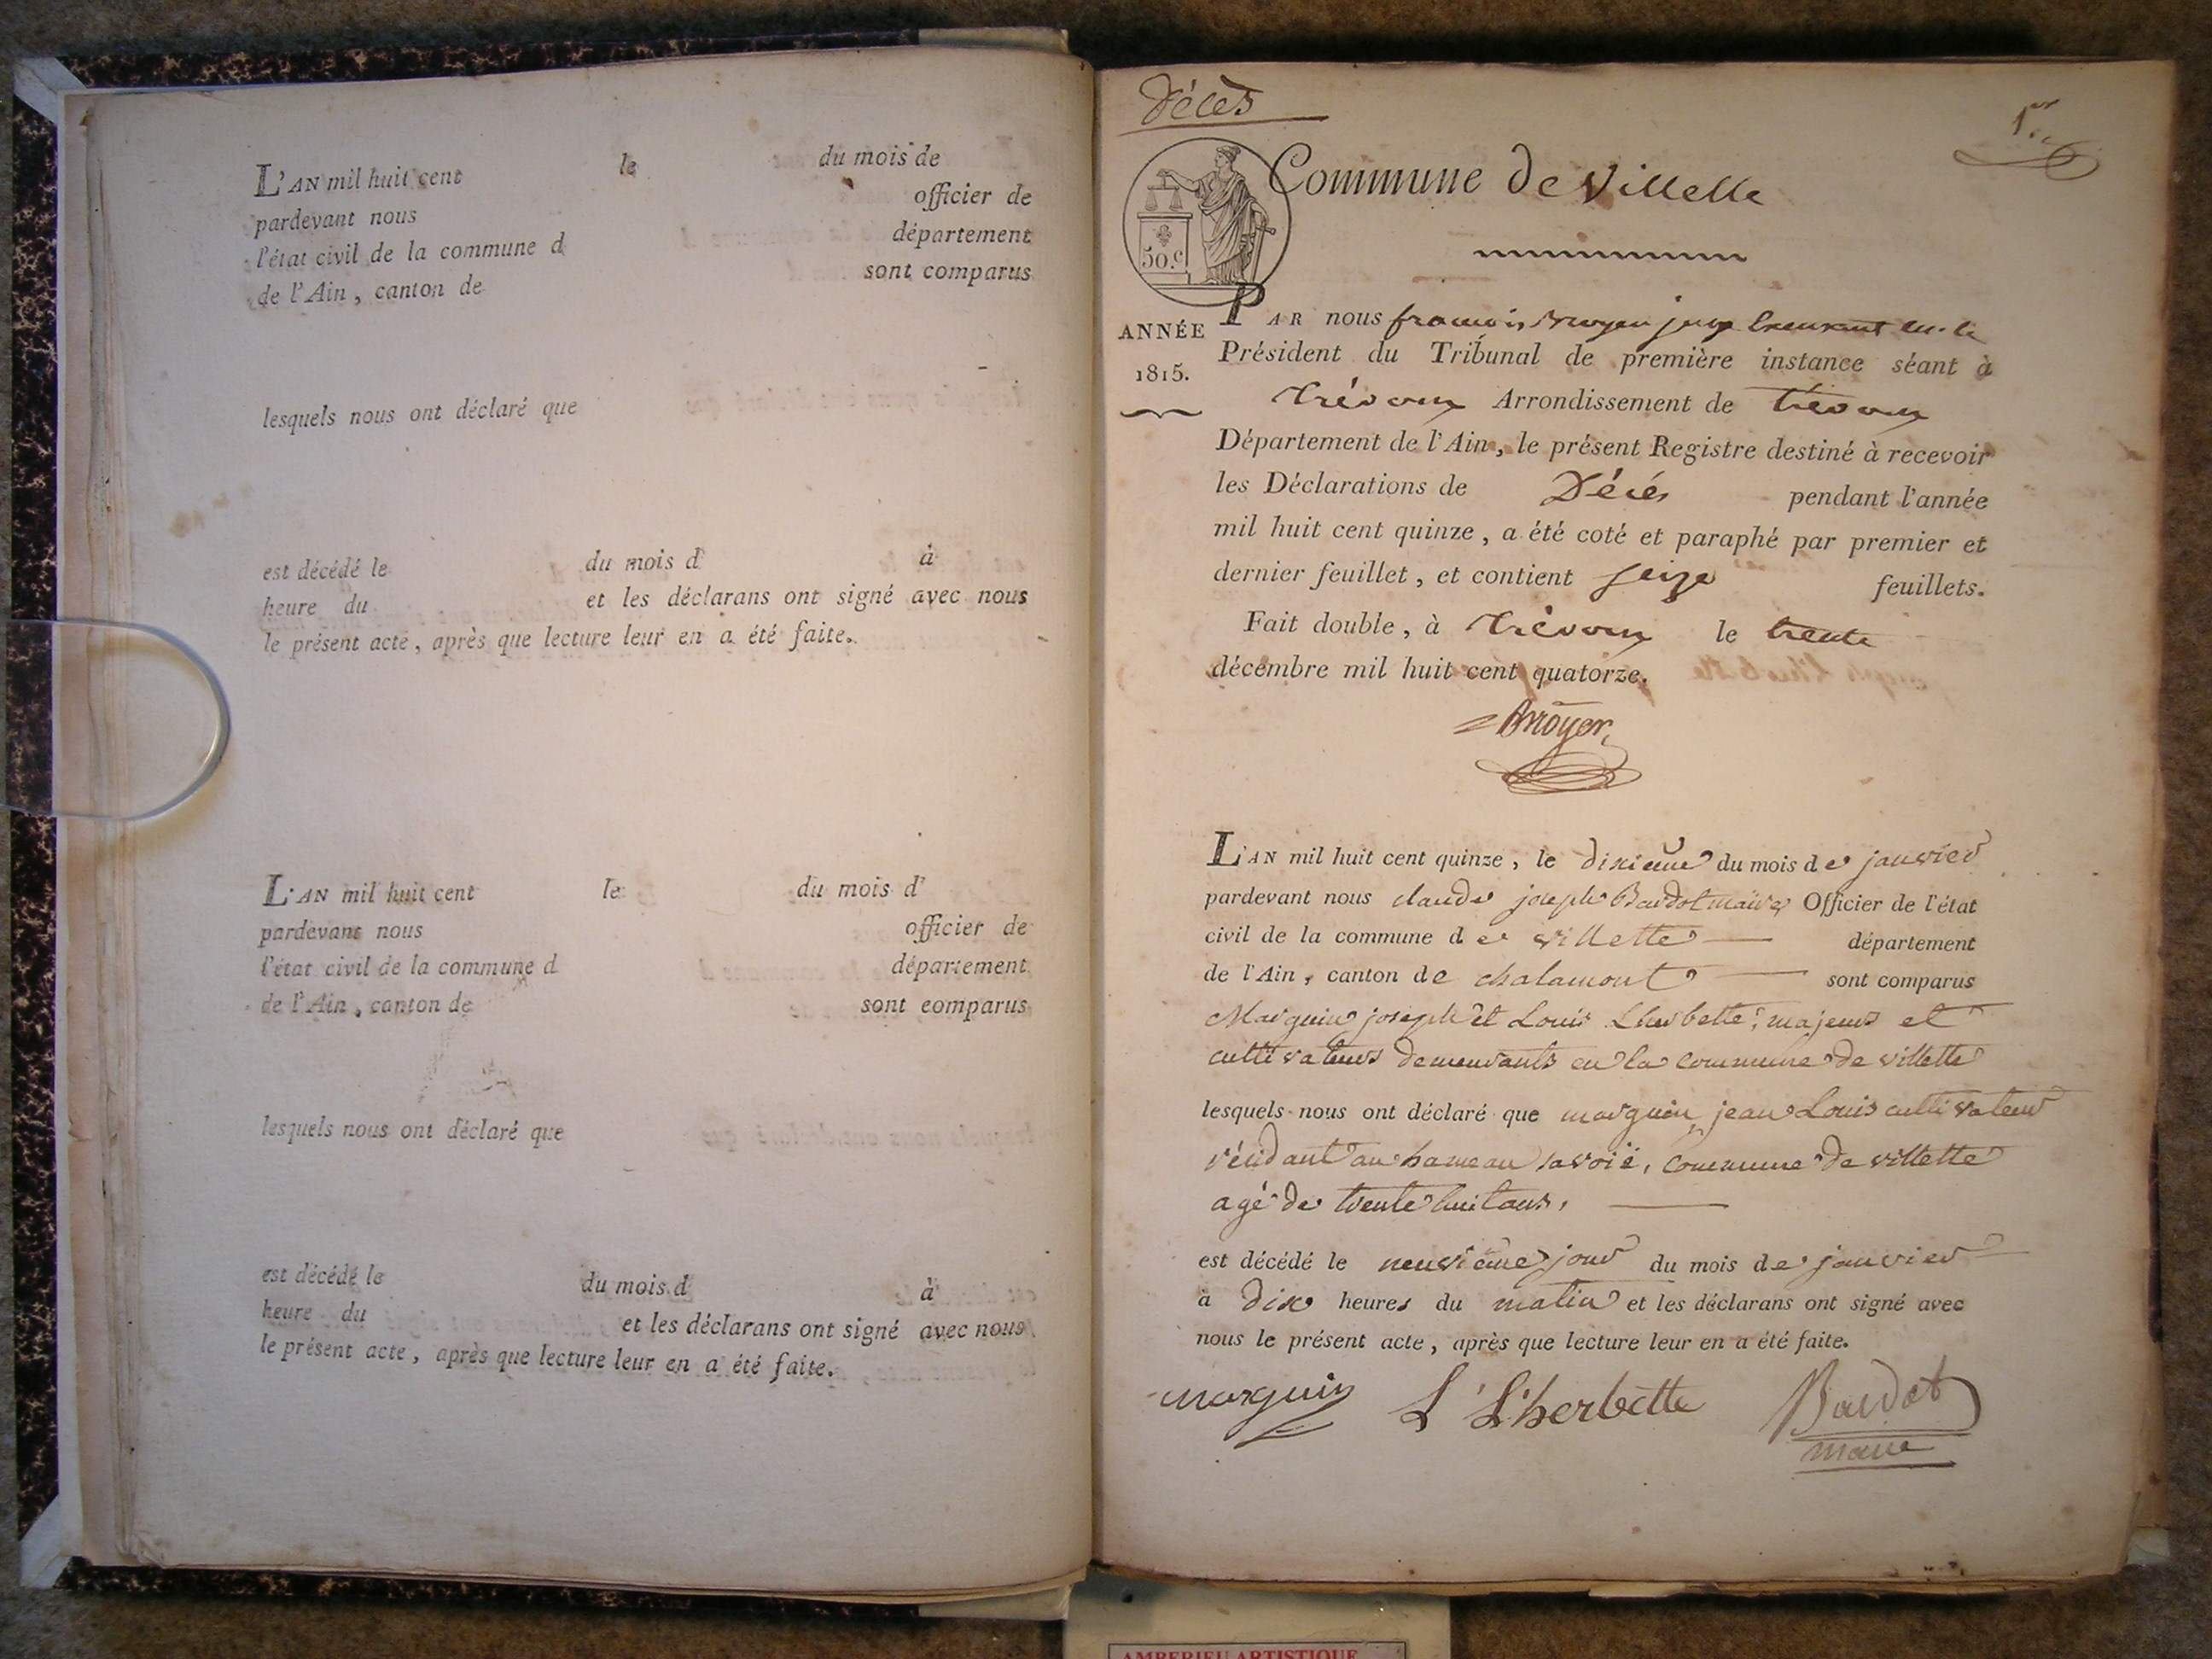 L'AN mil huit cent le du mois de
pardevant nous officier de
l'état civil de la commune d département
de l'Ain, canton de sont comparus
lesquels nous ont déclaré que
est décédé le du mois d à
heure du et les déclarans ont signé avec nous
le présent acte, après que lecture leur en a été faite.
L'AN mil huit cent le du mois d
pardevant nous officier de
l'état civil de la commune d département
de l'Ain, canton de sont comparus
lesquels nous ont déclaré que
est décédé le du mois d à
heure du et les déclarans ont signé avec nous
le présent acte, après que lecture leur en a été faite.
Décès
1er
Commune de Villette
50.c
ANNÉE
1815.
PAR nous françois juge
Président du Tribunal de première instance séant à
trévoux Arrondissement de trévoux
Département de l'Ain, le présent Registre destiné à recevoir
les Déclarations de Décés pendant l'année
mil huit cent quinze, a été coté et paraphé par premier et
dernier feuillet, et contient seize feuillets.
Fait double, à trévoux le trente
décembre mil huit cent quatorze.
L'AN mil huit cent quinze, le dixieme du mois de janvier
pardevant nous claude joseph Baudot maire Officier de l'état
civil de la commune de villette département
de l'Ain, canton de chalamont sont comparus
Marguin joseph et Louis Lherbette, majeurs et
cultivateurs demeurants en la commune de villette
lesquels nous ont déclaré que marguin jean Louis cultivateur
résidant au hameau savoie, commune de villette
agé de trente huit ans,
est décédé le neuvième jour du mois de janvier
à dix heures du matin et les déclarans ont signé avec
nous le présent acte, après que lecture leur en a été faite.
marguin L Lherbette Baudot
maire
AMBERIEU ARTISTIQUE